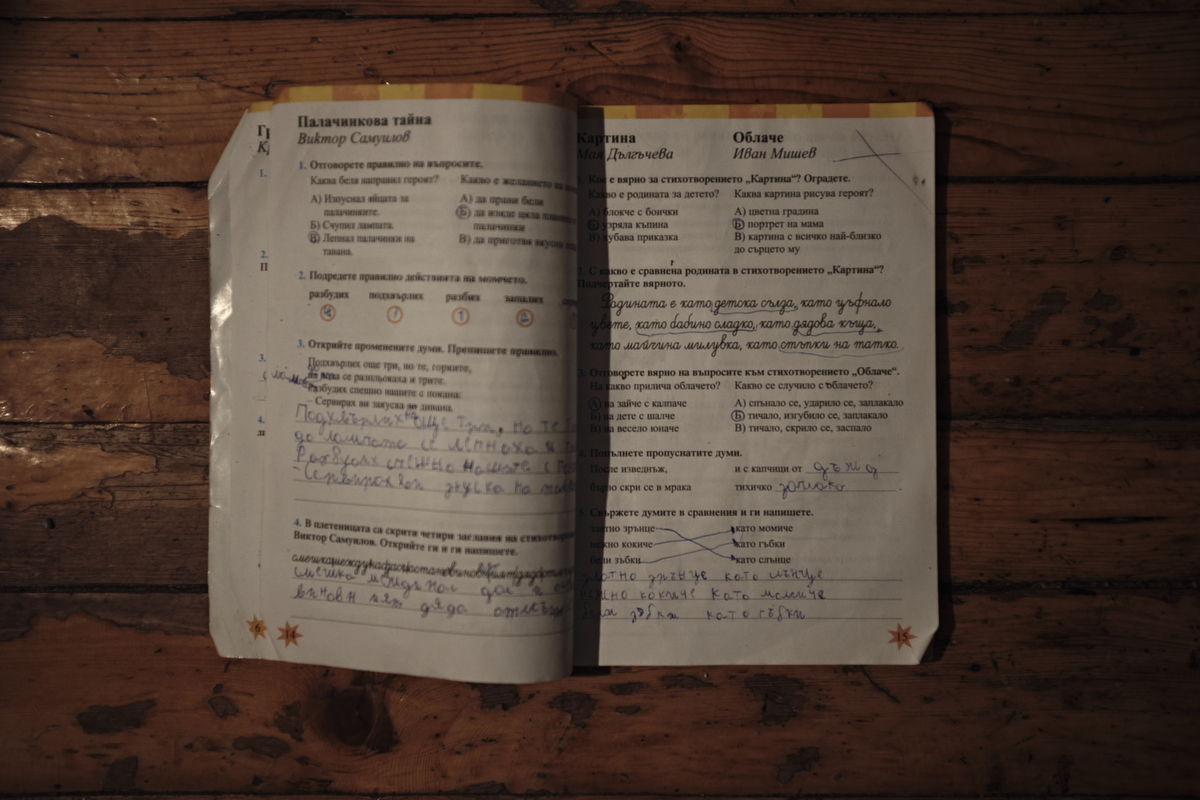 Палачинкова тайна
Виктор Самуилов
1. Отговорете правилно на въпросите.
Каква беля направил героят?
Какво е желанието на
А) Изпуснал яйцата за
палачинките.
Б) Счупил лампата.
В) Лепнал палачинки на
тавана.
А) да прави бели
Б) да изяде цяла
палачинки
В) да приготви вкусна
2. Подредете правилно действията на момчето.
разбудих подхвърлих разбих запалих
3. Открийте променените думи. Препишете правилно.
Подхвърлих още три, но те, горките,
се разплюкаха и трите.
Разбудих спешно нашите с покана:
– Сервирах ви закуска на дивана.
Подхвърлих още три, но те
до лампата се лепнаха и
Разбудих спешно нашите с
– Сервирах ви закуска на
4. В плетеницата са скрити четири заглавия на стихотворения
Виктор Самуилов. Открийте ги и ги напишете.
смешка
виновен път дядо
6
14
Картина
Мая Дългъчева
Облаче
Иван Мишев
1. Кое е вярно за стихотворението „Картина“? Оградете.
Какво е родината за детето?
А) блокче с боички
Б) узряла къпина
В) хубава приказка
Каква картина рисува героят?
А) цветна градина
Б) портрет на мама
В) картина с всичко най-близко
до сърцето му
2. С какво е сравнена родината в стихотворението „Картина“?
Подчертайте вярното.
Родината е като детска сълза, като цъфнало
цвете, като бабино сладко, като дядова къща,
като майчина милувка, като стъпки на татко.
3. Отговорете вярно на въпросите към стихотворението „Облаче“.
На какво прилича облачето?
А) на зайче с калпаче
Б) на дете с шалче
В) на весело юначе
Какво се случило с облачето?
А) спънало се, ударило се, заплакало
Б) тичало, изгубило се, заплакало
В) тичало, скрило се, заспало
4. Попълнете пропуснатите думи.
После изведнъж,
и с капчици от дъжд
бързо скри се в мрака
тихичко заплака
5. Свържете думите в сравнения и ги напишете.
златно зрънце като момиче
нежно кокиче като гъбки
бели зъбки като слънце
златно зрънце като слънце
нежно кокиче като момиче
бели зъбки като гъбки
15